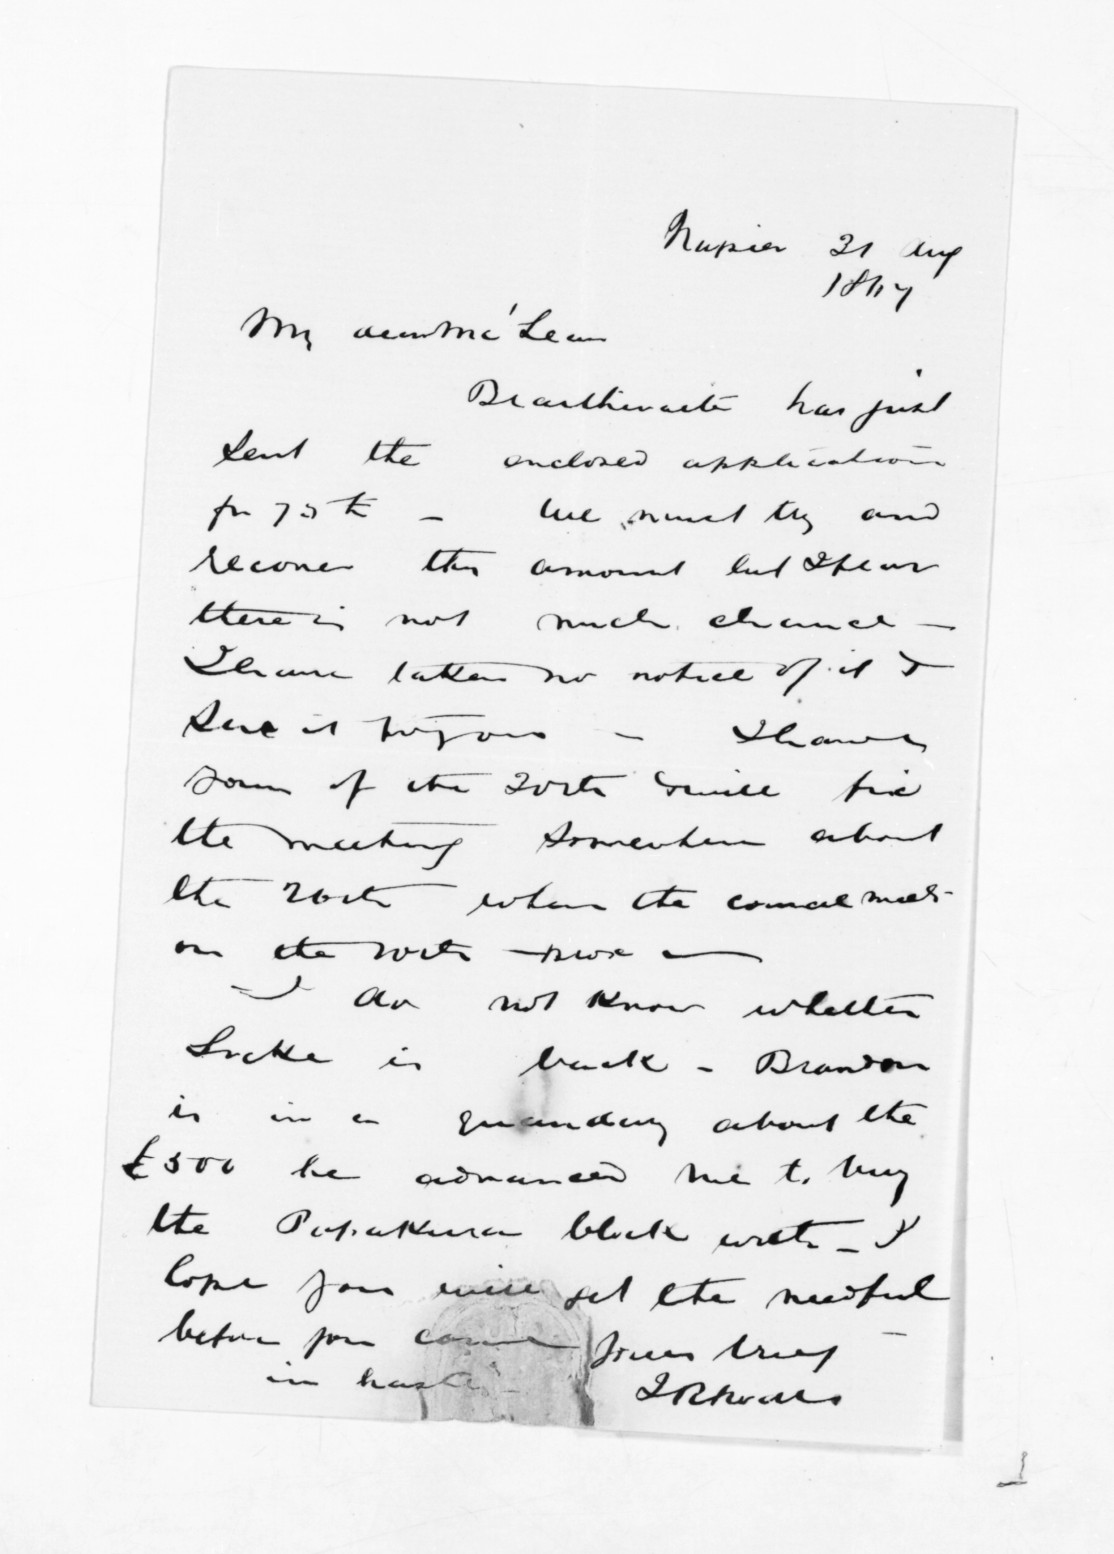 Napier 31 Aug
1867
My dear McLean
Braithwaite has just
sent the enclosed application
for 75 — We must try and
recover this amount but I fear
there is not much chance —
I have taken no notice of it &
see it — I have
yours of the 20th & will fix
the meeting somewhere about
the 26th when the council meets
on the
I do not know whether
Locke is back — Brandon
is in a quandary about the
£500 he advanced me to buy
the Papakura block with — I
hope you will get the needful
before you come Yours truly
in haste